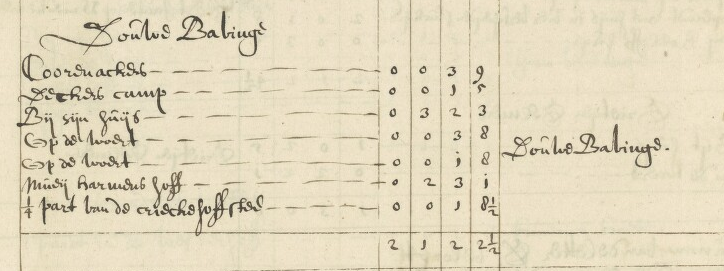 Douwe Babinge
Coorenackers 0 0 3 9
Deckers camp 0 0 1 5
Bij sijn huijs 0 3 2 3
Op de woert 0 0 3 8
Op de woert 0 0 1 8
Mueij harmens hoff 0 2 3 1
¼ part van de crieckehoffstee 0 0 1 8½
Douwe Babinge.
2 1 2 2½